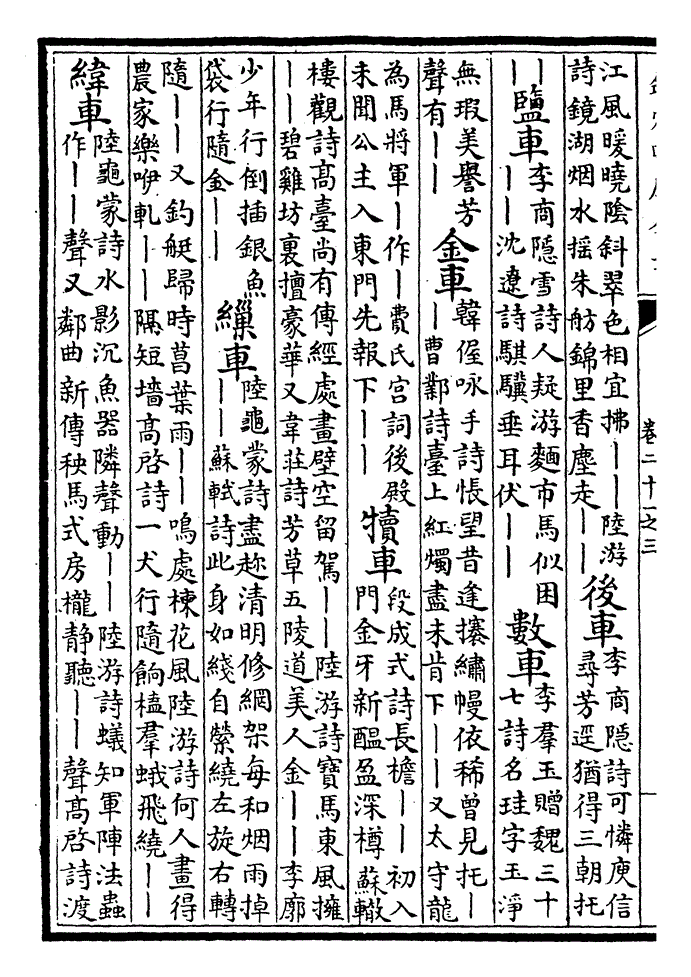 卷二十一之三
江風暖曉陰斜翠色相宜拂——陸游
詩鏡湖烟水揺朱舫錦里香塵走——
後車
李商隠詩可憐庾信
尋芳逕猶得三朝托
——
鹽車
李商隠雪詩人疑游麵市馬似困
——沈遼詩騏驥垂耳伏——
數車
李羣玉贈魏三十
七詩名珪字玉淨
無瑕美譽芳
聲有——
金車
韓偓咏手詩悵望昔逢搴繡幔依稀曾見托—
—曹鄴詩臺上紅燭盡未肯下——又太守龍
為馬將軍—作—費氏宫詞後殿
未聞公主入東門先報下——
犢車
段成式詩長檐——初入
門金牙新醖盈深樽蘇轍
樓觀詩髙臺尚有傳經處畫壁空留駕——陸游詩寶馬東風擁
——碧雞坊裏擅豪華又韋莊詩芳草五陵道美人金——李廓
少年行倒插銀魚
袋行隨金——
繅車
陸龜蒙詩盡趂清明修網架每和烟雨掉
——蘇軾詩此身如綫自縈繞左旋右轉
隨——又釣艇歸時菖葉雨——鳴處楝花風陸游詩何人畫得
農家樂咿軋——隔短墻髙啓詩一犬行隨餉榼羣蛾飛繞——
緯車
陸龜蒙詩水影沉魚器隣聲動——陸游詩蟻知軍陣法蟲
作——聲又鄰曲新傳秧馬式房櫳静聽——聲髙啓詩渡